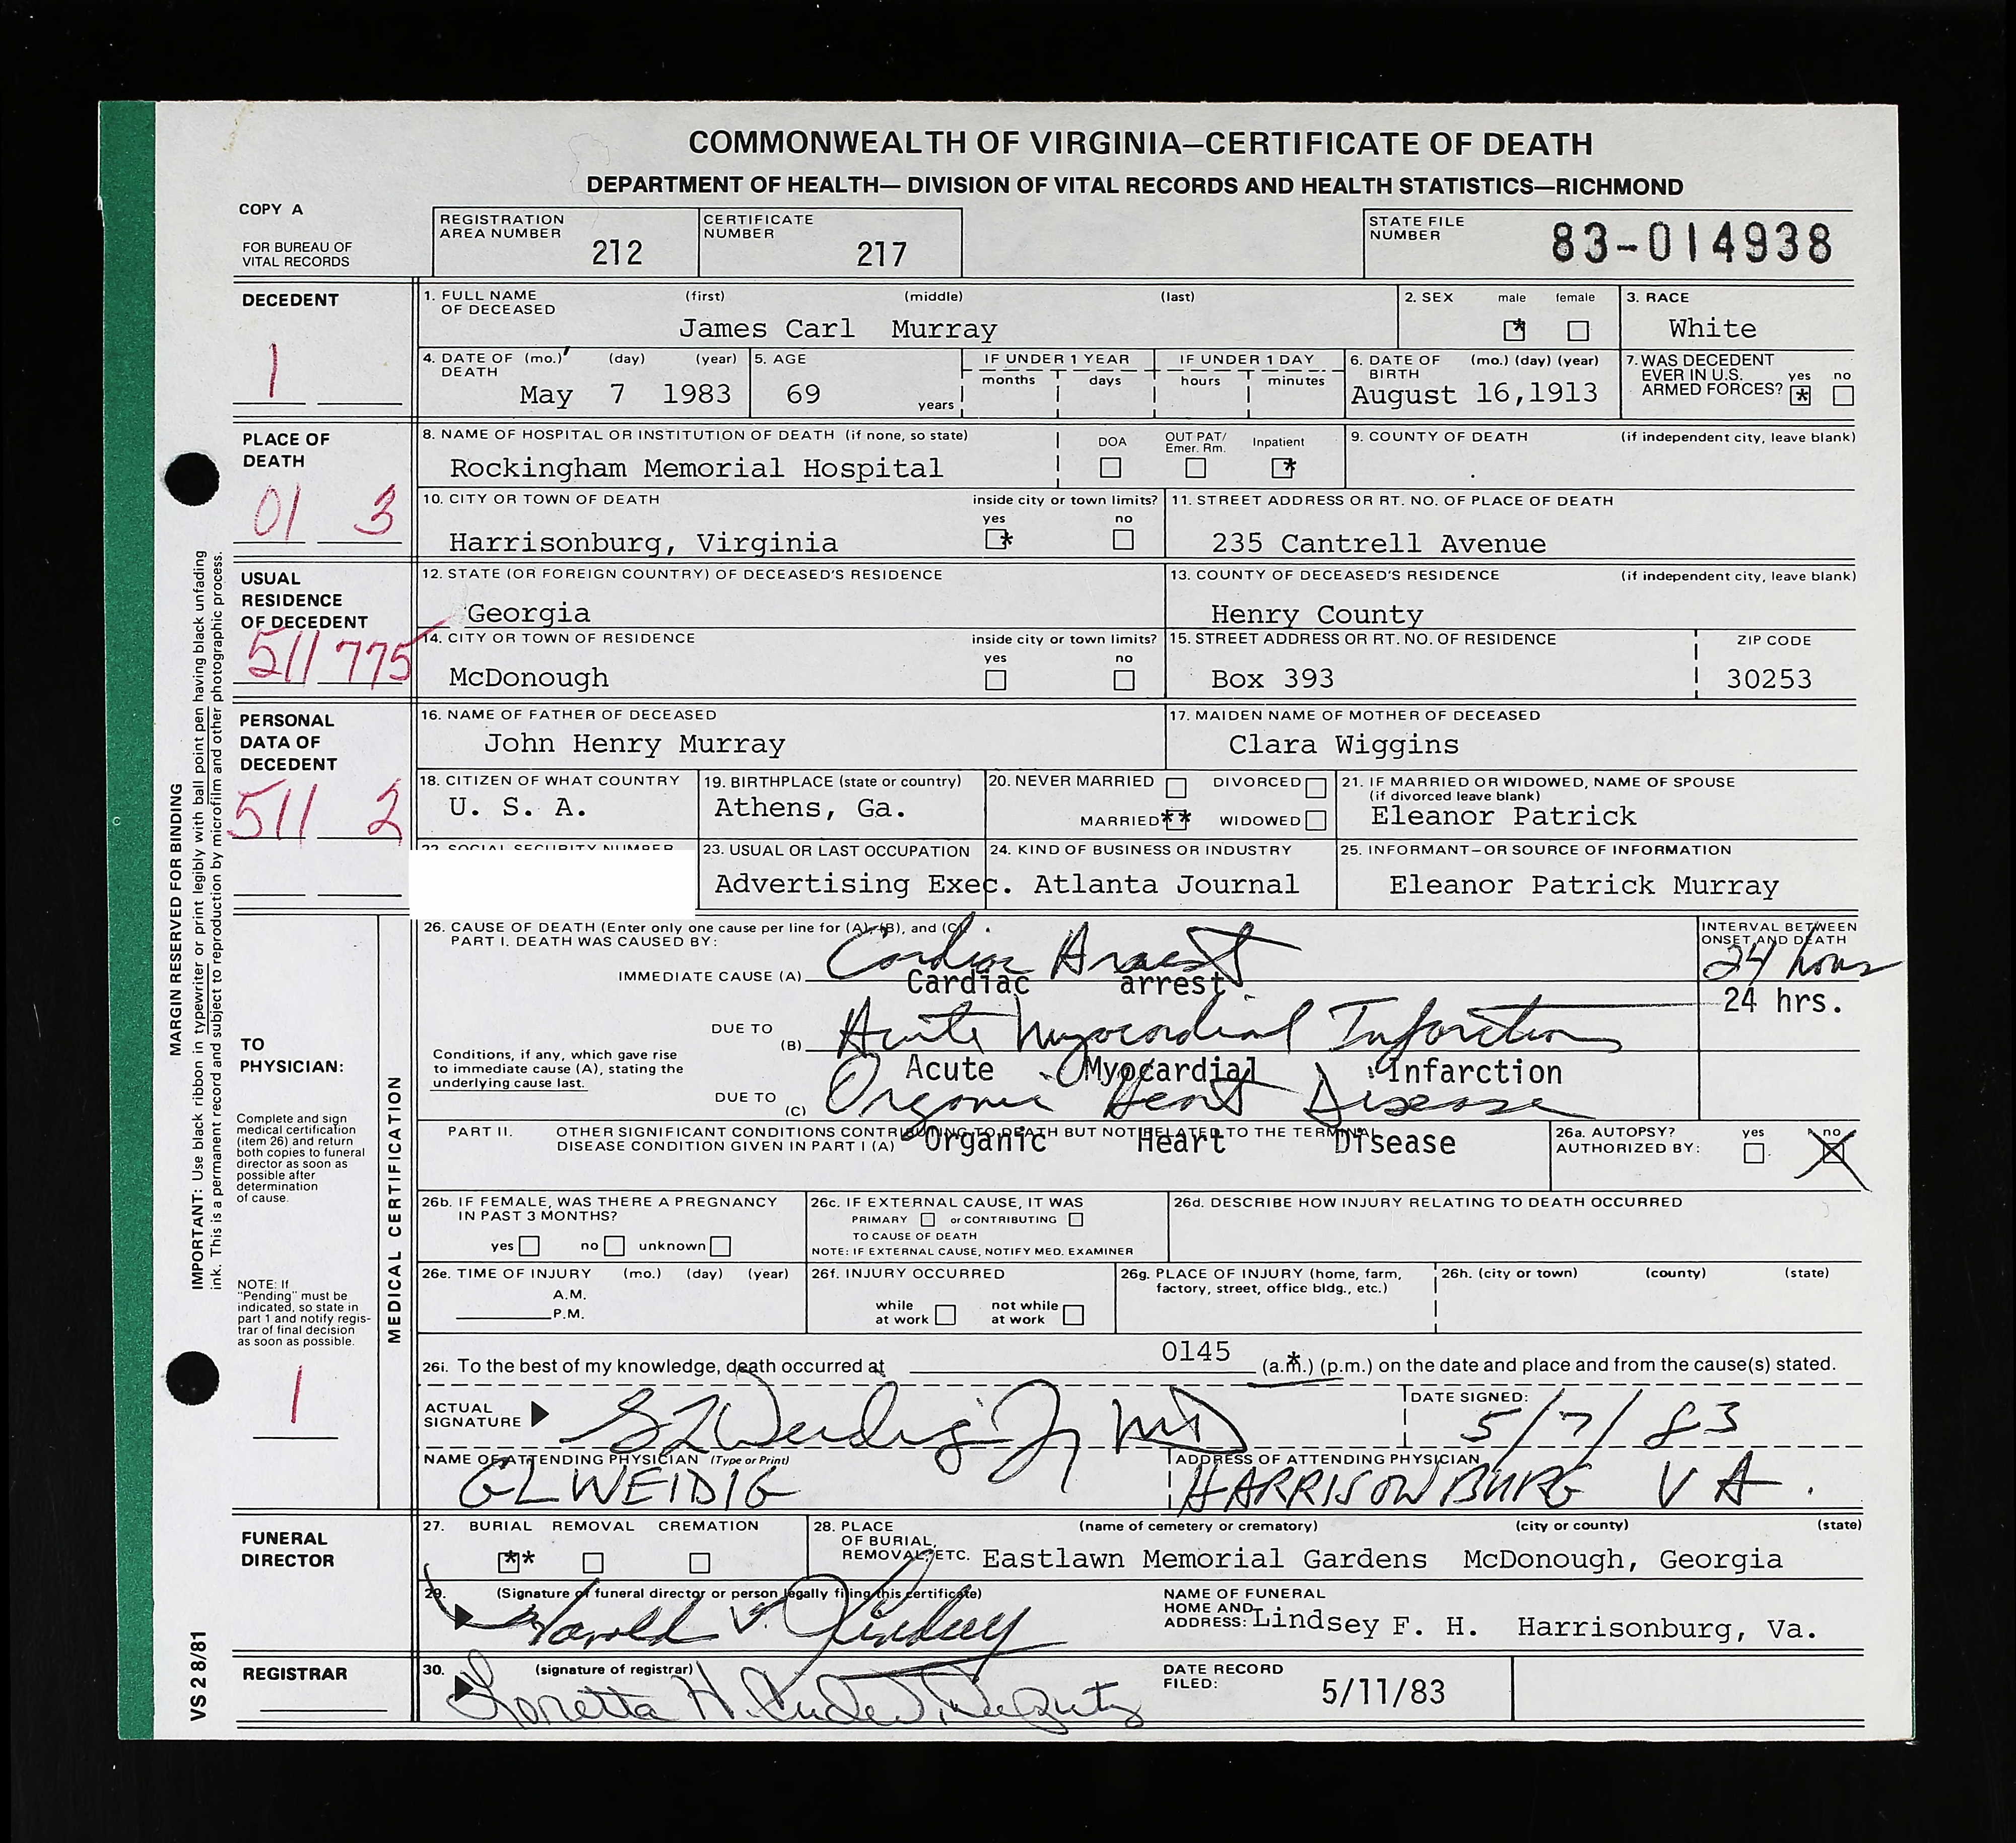 COMMONWEALTH OF VIRGINIA—CERTIFICATE OF DEATH
DEPARTMENT OF HEALTH— DIVISION OF VITAL RECORDS AND HEALTH STATISTICS—RICHMOND
COPY A
FOR BUREAU OF
VITAL RECORDS
REGISTRATION
AREA NUMBER 212
CERTIFICATE
NUMBER 217
STATE FILE
NUMBER 83-014938
DECEDENT
1
1. FULL NAME (first) (middle) (last)
OF DECEASED
James Carl Murray
2. SEX male female
*
3. RACE
White
4. DATE OF (mo.) (day) (year)
DEATH
May 7 1983
5. AGE
69 years
IF UNDER 1 YEAR
months days
IF UNDER 1 DAY
hours minutes
6. DATE OF (mo.) (day) (year)
BIRTH
August 16,1913
7. WAS DECEDENT
EVER IN U.S. yes no
ARMED FORCES? *
PLACE OF
DEATH
01 3
8. NAME OF HOSPITAL OR INSTITUTION OF DEATH (if none, so state)
Rockingham Memorial Hospital
DOA OUT PAT/ Inpatient
Emer. Rm.
*
9. COUNTY OF DEATH (if independent city, leave blank)
10. CITY OR TOWN OF DEATH inside city or town limits?
yes no
Harrisonburg, Virginia *
11. STREET ADDRESS OR RT. NO. OF PLACE OF DEATH
235 Cantrell Avenue
USUAL
RESIDENCE
OF DECEDENT
511 775
12. STATE (OR FOREIGN COUNTRY) OF DECEASED'S RESIDENCE
Georgia
13. COUNTY OF DECEASED'S RESIDENCE (if independent city, leave blank)
Henry County
14. CITY OR TOWN OF RESIDENCE inside city or town limits?
yes no
McDonough
15. STREET ADDRESS OR RT. NO. OF RESIDENCE ZIP CODE
Box 393 30253
PERSONAL
DATA OF
DECEDENT
511 2
16. NAME OF FATHER OF DECEASED
John Henry Murray
17. MAIDEN NAME OF MOTHER OF DECEASED
Clara Wiggins
18. CITIZEN OF WHAT COUNTRY
U. S. A.
19. BIRTHPLACE (state or country)
Athens, Ga.
20. NEVER MARRIED DIVORCED
MARRIED ** WIDOWED
21. IF MARRIED OR WIDOWED, NAME OF SPOUSE
(if divorced leave blank)
Eleanor Patrick
22. SOCIAL SECURITY NUMBER
23. USUAL OR LAST OCCUPATION
Advertising Exec.
24. KIND OF BUSINESS OR INDUSTRY
Atlanta Journal
25. INFORMANT—OR SOURCE OF INFORMATION
Eleanor Patrick Murray
MARGIN RESERVED FOR BINDING
IMPORTANT: Use black ribbon in typewriter or print legibly with ball point pen having black unfading
ink. This is a permanent record and subject to reproduction by microfilm and other photographic process.
VS 2 8/81
TO
PHYSICIAN:
Complete and sign
medical certification
(item 26) and return
both copies to funeral
director as soon as
possible after
determination
of cause.
NOTE: If
"Pending" must be
indicated, so state in
part 1 and notify regis-
trar of final decision
as soon as possible.
1
MEDICAL CERTIFICATION
26. CAUSE OF DEATH (Enter only one cause per line for (A), (B), and (C)
PART I. DEATH WAS CAUSED BY:
INTERVAL BETWEEN
ONSET AND DEATH
IMMEDIATE CAUSE (A) Cardiac Arrest 24 hours
Cardiac arrest 24 hrs.
DUE TO
(B) Acute Myocardial Infarction
Acute Myocardial Infarction
Conditions, if any, which gave rise
to immediate cause (A), stating the
underlying cause last.
DUE TO
(C) Organic Heart Disease
Organic Heart Disease
PART II. OTHER SIGNIFICANT CONDITIONS CONTRIBUTING TO DEATH BUT NOT RELATED TO THE TERMINAL
DISEASE CONDITION GIVEN IN PART I (A)
26a. AUTOPSY? yes no
AUTHORIZED BY: X
26b. IF FEMALE, WAS THERE A PREGNANCY
IN PAST 3 MONTHS?
yes no unknown
26c. IF EXTERNAL CAUSE, IT WAS
PRIMARY or CONTRIBUTING
TO CAUSE OF DEATH
NOTE: IF EXTERNAL CAUSE, NOTIFY MED. EXAMINER
26d. DESCRIBE HOW INJURY RELATING TO DEATH OCCURRED
26e. TIME OF INJURY (mo.) (day) (year)
A.M.
P.M.
26f. INJURY OCCURRED
while not while
at work at work
26g. PLACE OF INJURY (home, farm,
factory, street, office bldg., etc.)
26h. (city or town) (county) (state)
26i. To the best of my knowledge, death occurred at 0145 (a.m.) (p.m.) on the date and place and from the cause(s) stated.
ACTUAL
SIGNATURE GL Weidig Jr MD
DATE SIGNED:
5/7/83
NAME OF ATTENDING PHYSICIAN (Type or Print)
GL WEIDIG
ADDRESS OF ATTENDING PHYSICIAN
HARRISONBURG VA.
FUNERAL
DIRECTOR
27. BURIAL REMOVAL CREMATION
**
28. PLACE (name of cemetery or crematory) (city or county) (state)
OF BURIAL,
REMOVAL, ETC. Eastlawn Memorial Gardens McDonough, Georgia
29. (Signature of funeral director or person legally filing this certificate)
Harold V. Lindsey
NAME OF FUNERAL
HOME AND
ADDRESS: Lindsey F. H. Harrisonburg, Va.
REGISTRAR
30. (signature of registrar)
Loretta H. Deputy
DATE RECORD
FILED: 5/11/83